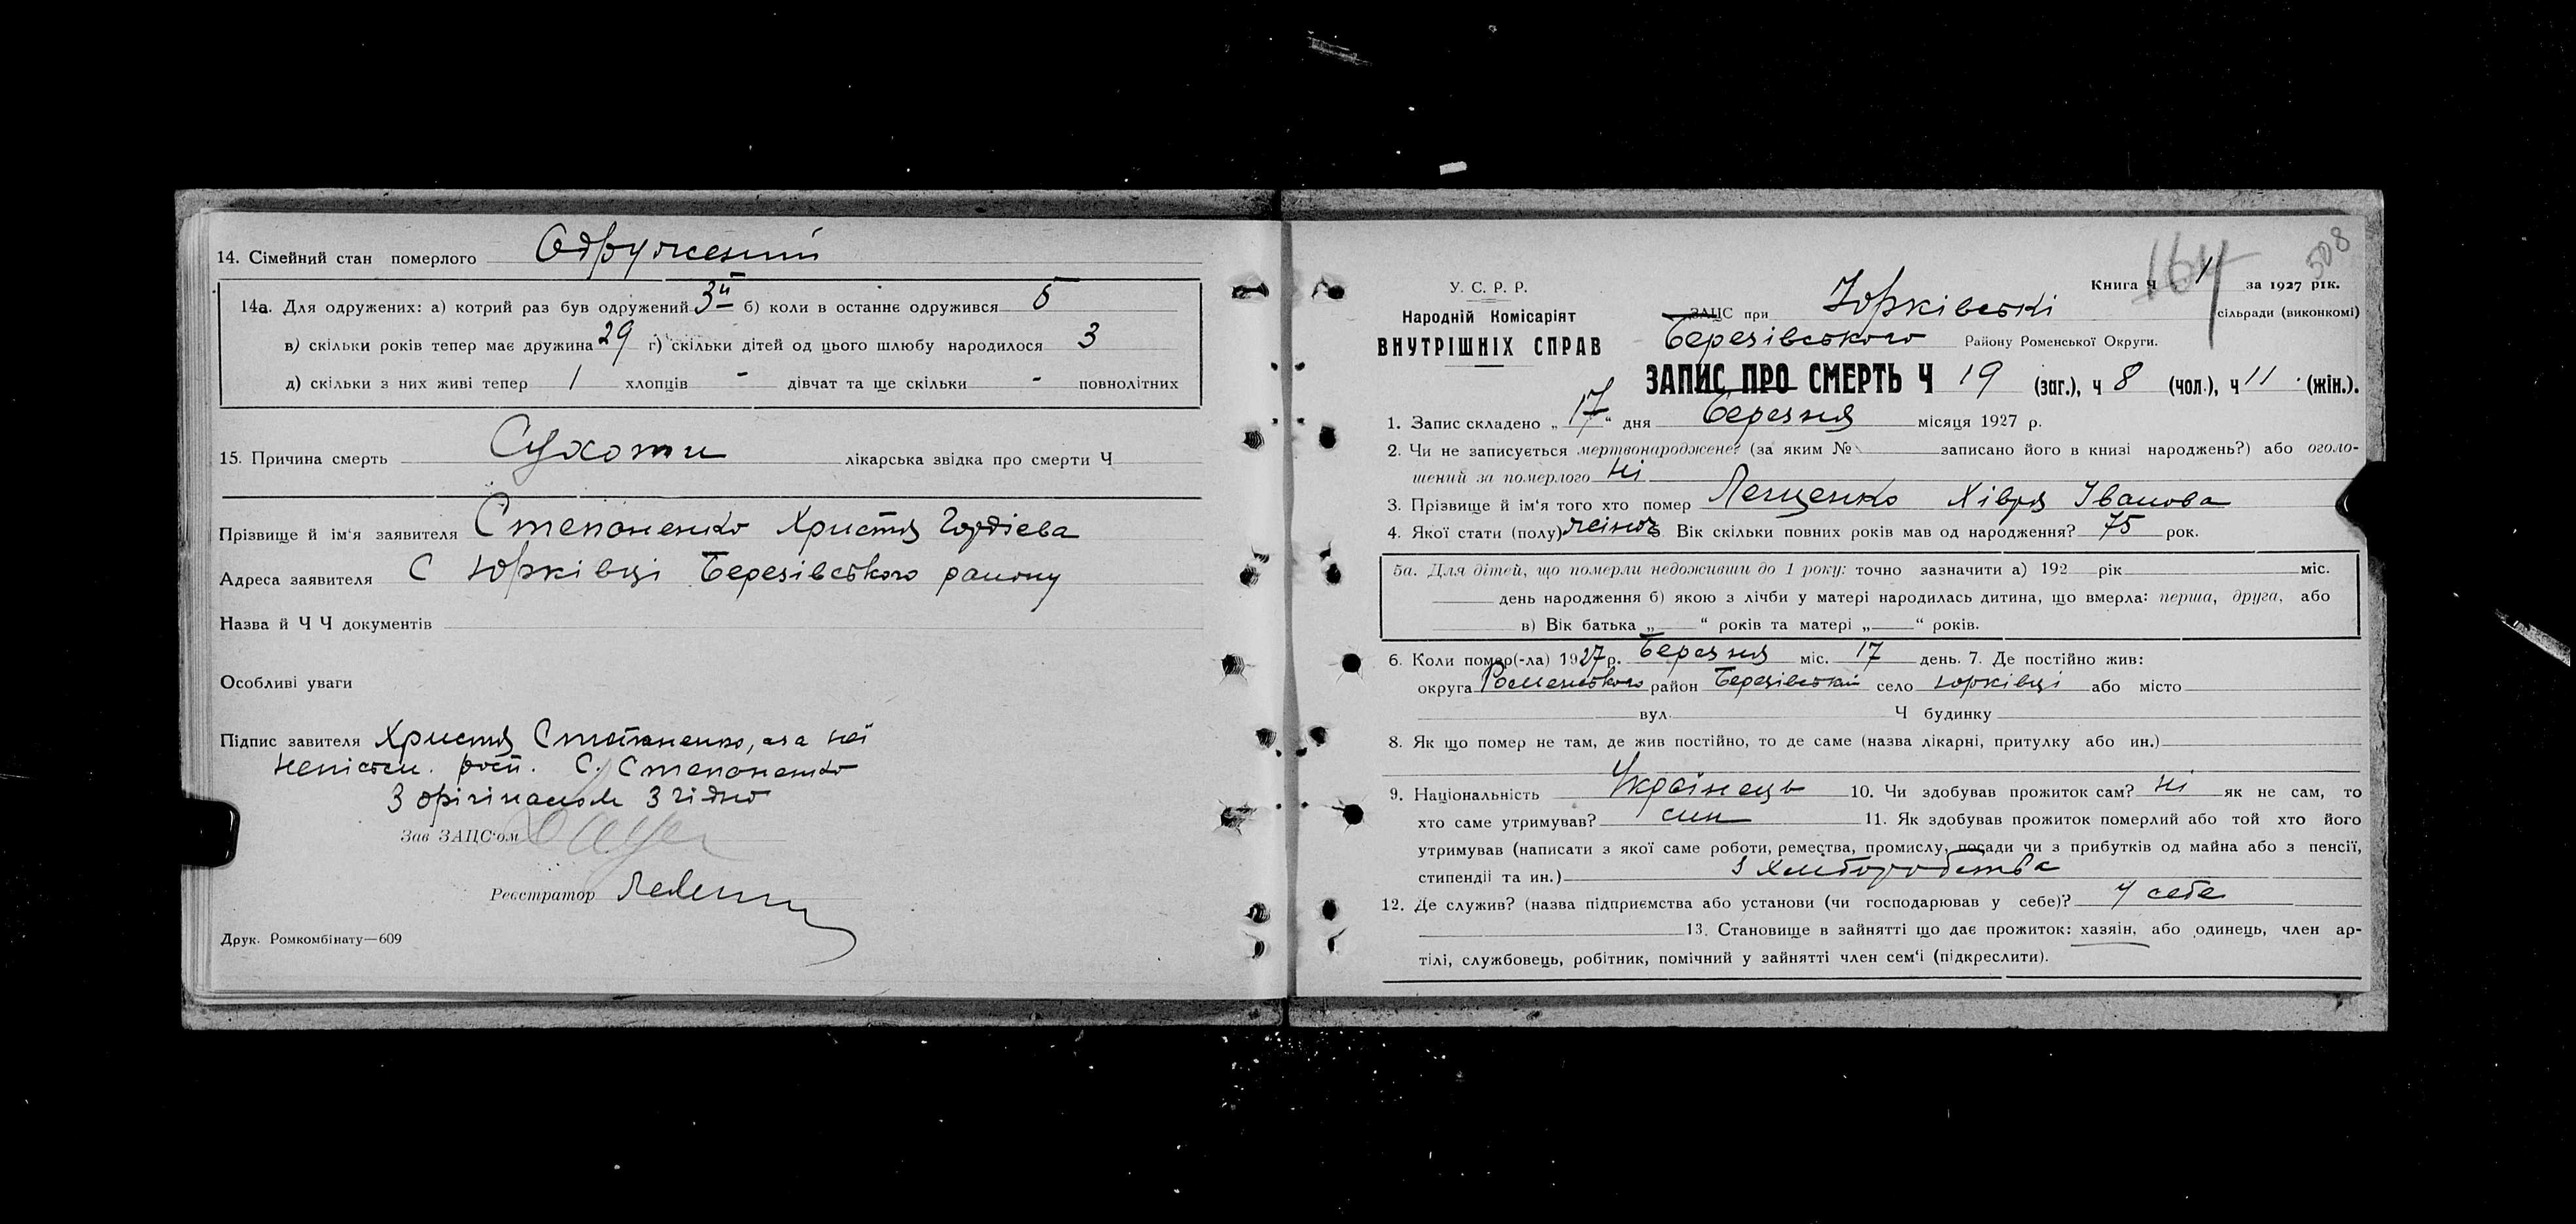 14. Сімейний стан померлого Одружений
14а. Для одружених: а) котрий раз був одружений 3й б) коли в останнє одружився 5
в) скільки років тепер має дружина 29 г) скільки дітей од цього шлюбу народилося 3
д) скільки з них живі тепер 1 хлопців - дівчат та ще скільки - повнолітних
15. Причина смерть Сухоти лікарська звідка про смерти Ч
Прізвище й ім'я заявителя Степоненко Христя Гордієва
Адреса заявителя С Юрківці Березівського району
Назва й Ч Ч документів
Особливі уваги
Підпис завителя Христя Степоненко, а за неї
неписьм. розп. С. Степоненко
З орігіналом Згідно
Зав ЗАЦС'ом
Реєстратор
Друк. Ромкомбінату—609
164 508
У. С. Р. Р.
Книга Ч 1 за 1927 рік.
Народній Комісаріят
ВНУТРІШНІХ СПРАВ
ЗАЦС при Юрківські сільради (виконкомі)
Березівського Району Роменської Округи.
ЗАПИС ПРО СМЕРТЬ Ч 19 (заг.), ч 8 (чол.), ч 11 (жін.).
1. Запис складено „17“ дня Березня місяця 1927 р.
2. Чи не записується мертвонароджене? (за яким № записано його в книзі народжень?) або оголо-
шений за померлого Ні
3. Прізвище й ім'я того хто помер Лещенко Хівря Іванова
4. Якої стати (полу) жіноч. Вік скільки повних років мав од народження? 75 рок.
5а. Для дітей, що померли недоживши до 1 року: точно зазначити а) 192 рік міс.
день народження б) якою з лічби у матері народилась дитина, що вмерла: перша, друга, або
в) Вік батька „ “ років та матері „ “ років.
6. Коли помер(-ла) 1927 р. Березня міс. 17 день. 7. Де постійно жив:
округа Роменського район Березівський село Юрківці або місто
вул. Ч будинку
8. Як що помер не там, де жив постійно, то де саме (назва лікарні, притулку або ин.)
9. Національність Українець 10. Чи здобував прожиток сам? Ні як не сам, то
хто саме утримував? син 11. Як здобував прожиток померлий або той хто його
утримував (написати з якої саме роботи, ремества, промислу, посади чи з прибутків од майна або з пенсії,
стипендії та ин.) З Хліборобства
12. Де служив? (назва підприємства або установи (чи господарював у себе)? У себе
13. Становище в зайнятті що дає прожиток: хазяін, або одинець, член ар-
тілі, службовець, робітник, помічний у зайнятті член сем'і (підкреслити).